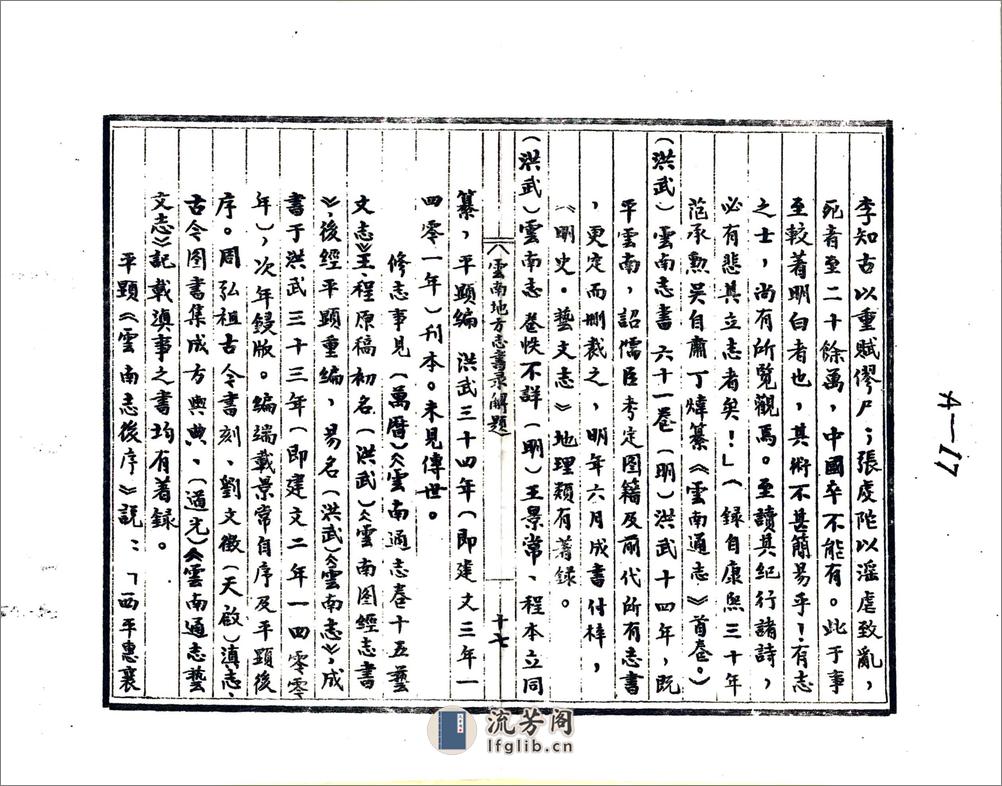 李知古以重賦僇尸；張虔陀以淫虐致亂，
死者至二十餘萬，中國卒不能有。此于事
至較著明白者也，其術不甚簡易乎！有志
之士，尚有所覽觀焉。至讀其紀行諸詩，
必有悲其立志者矣！」（錄自康熙三十年
范承勲吴自肅丁煒纂《雲南通志》首卷。）
（洪武）雲南志書 六十一卷（明）洪武十四年，既
平雲南，詔儒臣考定图籍及前代所有志書
，更定而删裁之，明年六月成書付梓，
《明史·藝文志》地理類有著録。
（洪武）雲南志 卷帙不詳（明）王景常、程本立同
《雲南地方志書录解題》 十七
纂，平顯編 洪武三十四年（即建文三年一
四零一年）刊本。未見傳世。
修志事見（萬曆）《雲南通志卷十五藝
文志》王、程原稿初名（洪武）《雲南图經志書
》，後經平顯重編，易名（洪武）《雲南志》，成
書于洪武三十三年（即建文二年一四零零
年），次年鋟版。编端載景常自序及平顯後
序。周弘祖古今書刻、劉文徵（天啟）滇志、
古今图書集成方輿典、（道光）《雲南通志藝
文志》記載滇事之書均有著録。
平顯《雲南志後序》説：「西平惠襄
A—17
流芳阁
lfglib.cn